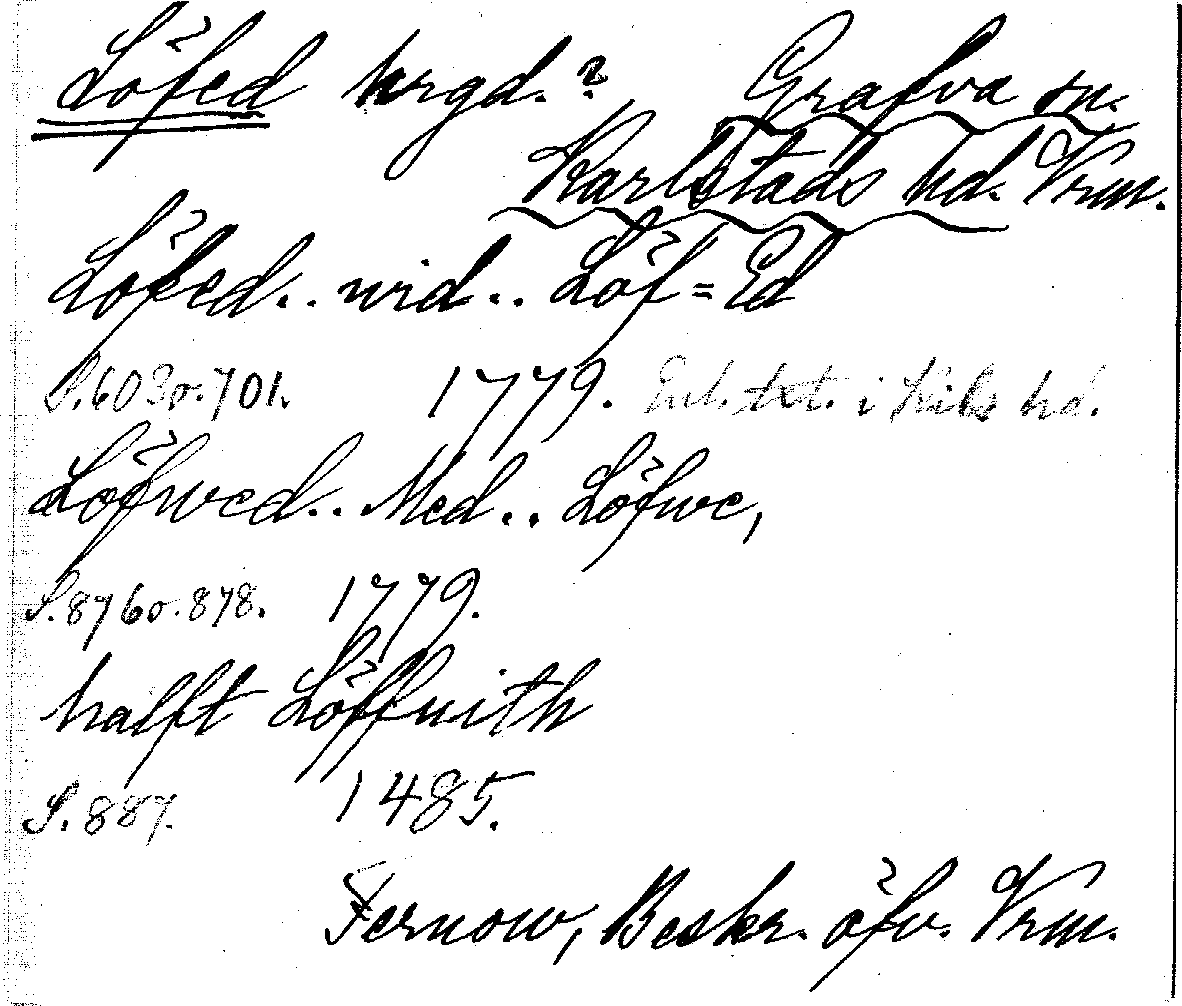 Löfed hrgd.? Grafva sn.
Karlstads hd. Vrm.
Löfed.. wid.. Löf=Ed
S.603o.701. 1779. Enl. txt. i Kils hd.
Löfwed.. Med.. Löfwe,
S.876o.878. 1779.
halfft Löffuith
S.887. 1485.
Fernow, Beskr. öfv. Vrm.